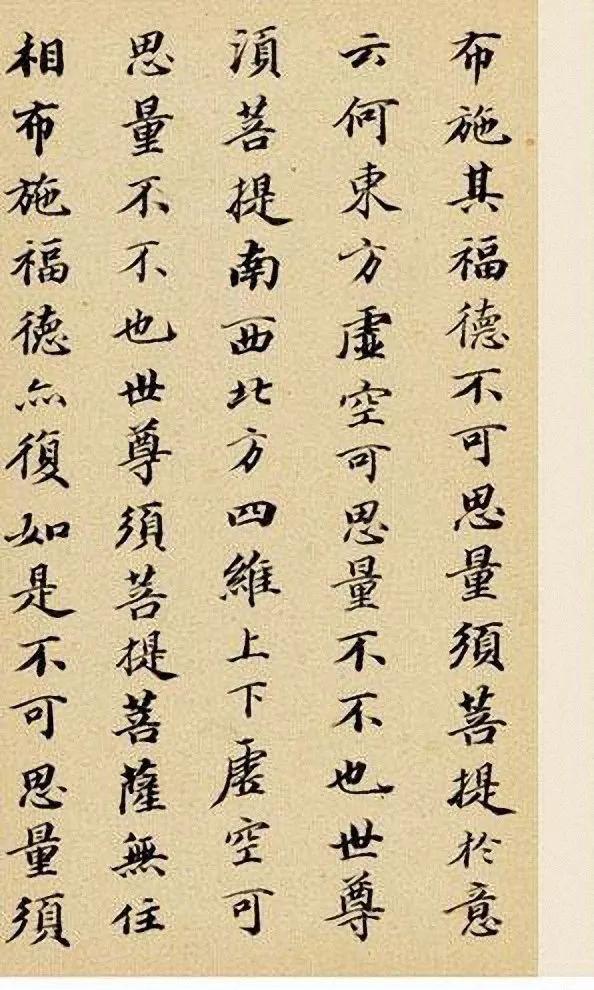 布施其福德不可思量須菩提於意
云何東方虛空可思量不不也世尊
須菩提南西北方四維上下虛空可
思量不不也世尊須菩提菩薩無住
相布施福德亦復如是不可思量須